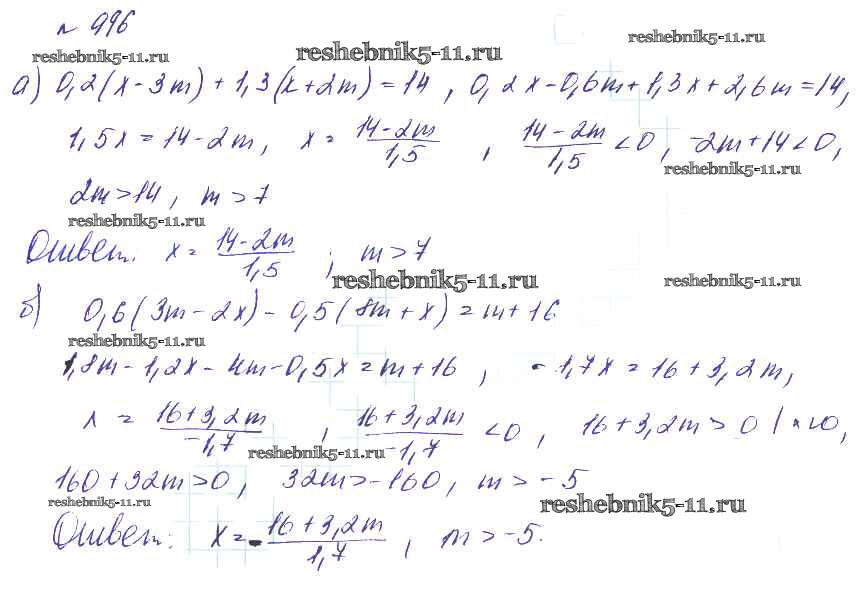 № 996
reshebnik5-11.ru reshebnik5-11.ru reshebnik5-11.ru
а) 0,2(x-3m)+1,3(x+2m)=14, 0,2x-0,6m+1,3x+2,6m=14,
1,5x=14-2m, x=\frac{14-2m}{1,5}, \frac{14-2m}{1,5}<0, -2m+14<0,
reshebnik5-11.ru
2m>14, m>7
reshebnik5-11.ru
Ответ. x=\frac{14-2m}{1,5}; m>7
reshebnik5-11.ru reshebnik5-11.ru
б) 0,6(3m-2x)-0,5(8m+x)=m+16
reshebnik5-11.ru
1,8m-1,2x-4m-0,5x=m+16, -1,7x=16+3,2m,
x=\frac{16+3,2m}{-1,7}, \frac{16+3,2m}{-1,7}<0, 16+3,2m>0
reshebnik5-11.ru
160+32m>0, 32m>-160, m>-5
reshebnik5-11.ru reshebnik5-11.ru
Ответ: x=-\frac{16+3,2m}{1,7}, m>-5.